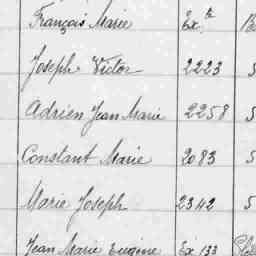 François Marie Ex.te
Joseph Victor 2223 5
Adrien Jean Marie 2258 5
Constant Marie 2083 5
Marie Joseph 2342 5
Jean Marie Eugène Ex 133